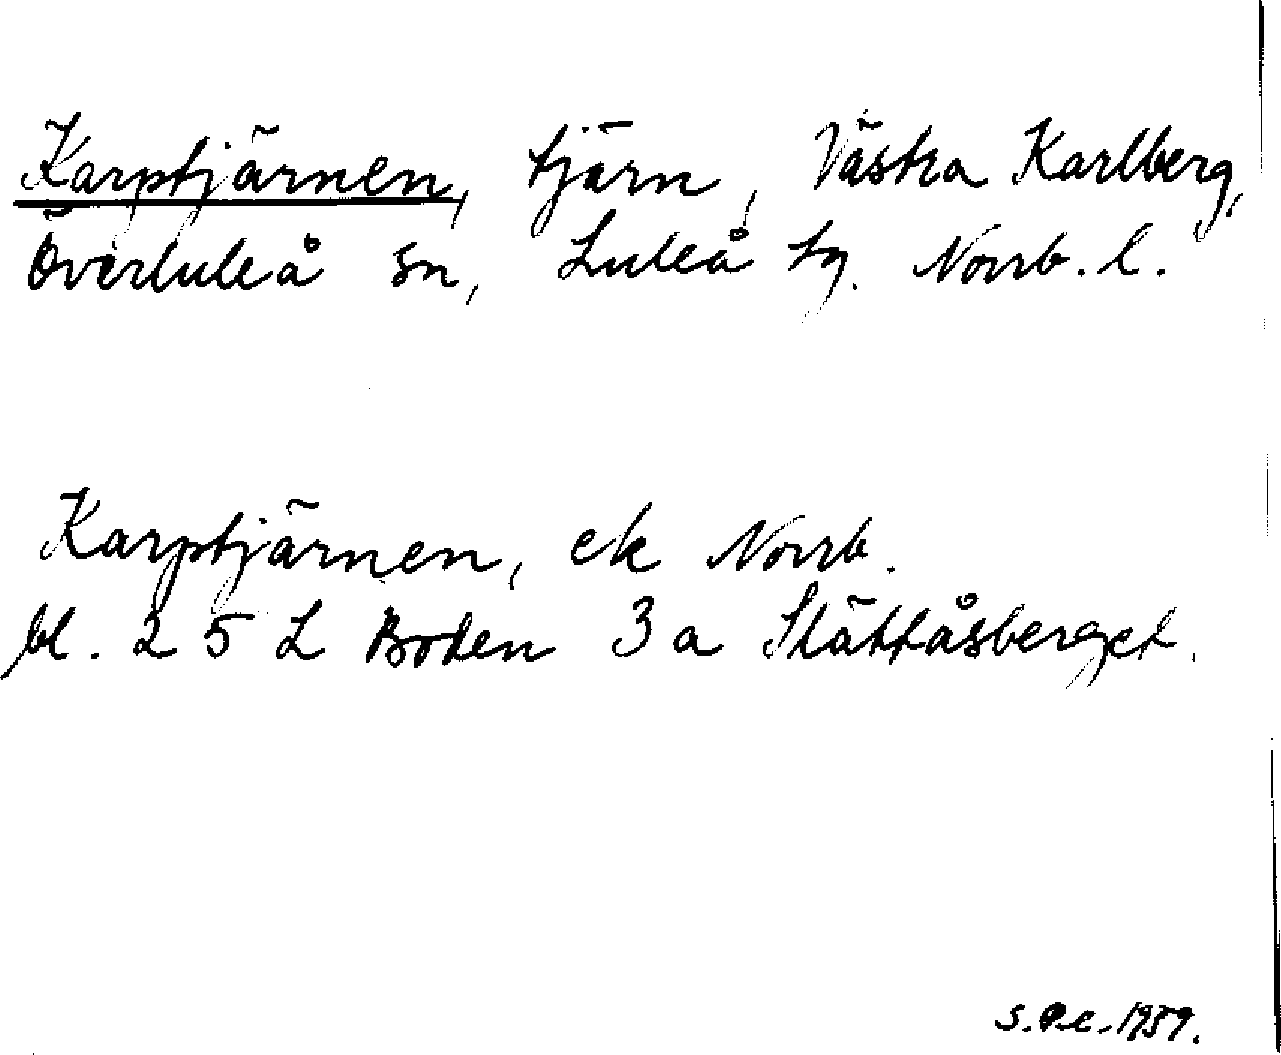 Karptjärnen, tjärn, Västra Karlberg,
Överluleå sn, Luleå tg. Norrb. l.
Karptjärnen, ek Norrb.
bl. 25 L Boden 3 a Slättåsberget.
S.P.e. 1959.